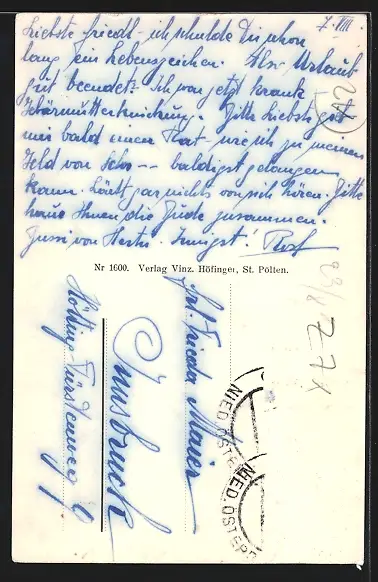 7. VIII.
Liebste Friedl – ich schulde Dir schon
lang ein Lebenszeichen. Also Urlaub
gut beendet – Ich war jetzt krank
Bitte Liebste gib
mir bald einen Rat – wie ich zu meinem
Geld von – – baldigst gelangen
kann. Lässt gar nichts von sich hören. Bitte
Ihnen die zusammen.
Bussi von Herta. Innigst!
Nr 1600. Verlag Vinz. Höfinger, St. Pölten.
Frl. Frieda Maier
Innsbruck
Hötting - Fürstenweg 9
NIED. ÖSTERR
NIED. ÖSTERR